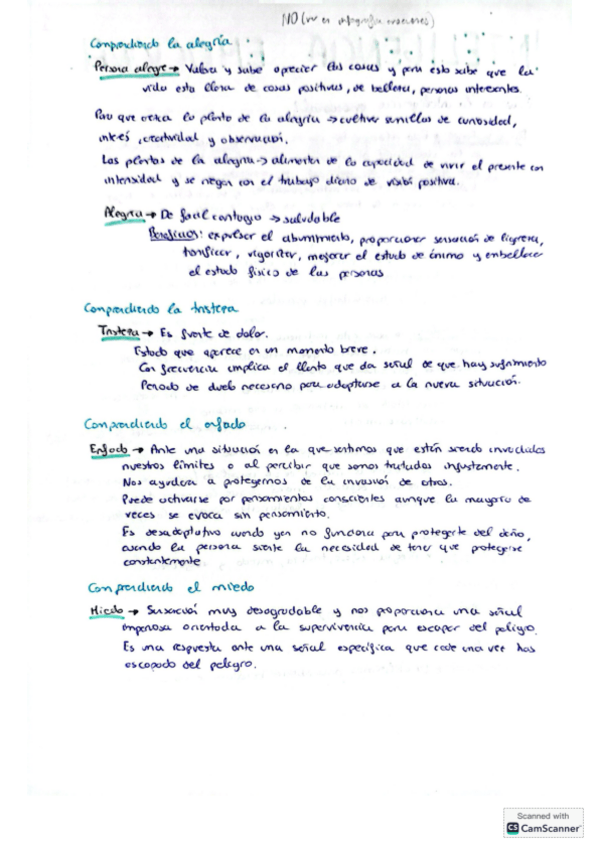 NO (ver en infografía emociones)
Comprendiendo la alegría
Persona alegre → Valora y sabe apreciar las cosas y para esto sabe que la
vida esta llena de cosas positivas, de belleza, personas interesantes.
Para que crezca la planta de la alegría → cultivar semillas de curiosidad,
interés, creatividad y observación.
Las plantas de la alegría → alimentan de la capacidad de vivir el presente con
intensidad y se riegan con el trabajo diario de visión positiva.
Alegría → De fácil contagio → saludable
Beneficios: expulsar el aburrimiento, proporcionar sensación de ligereza,
tonificar, vigorizar, mejorar el estado de ánimo y embellecer
el estado físico de las personas
Comprendiendo la tristeza
Tristeza → Es fuente de dolor.
Estado que aparece en un momento breve.
Con frecuencia implica el llanto que da señal de que hay sufrimiento
Periodo de duelo necesario para adaptarse a la nueva situación.
Comprendiendo el enfado
Enfado → Ante una situación en la que sentimos que están siendo invadidos
nuestros límites o al percibir que somos tratados injustamente.
Nos ayudara a protegernos de la invasión de otros.
Puede activarse por pensamientos conscientes aunque la mayoría de
veces se evoca sin pensamiento.
Es desadaptativo cuando ya no funciona para protegerte del daño,
cuando la persona siente la necesidad de tener que protegerse
constantemente
Comprendiendo el miedo
Miedo → Sensación muy desagradable y nos proporciona una señal
imperiosa orientada a la supervivencia para escapar del peligro.
Es una respuesta ante una señal específica que cede una vez has
escapado del peligro.
Scanned with
CS CamScanner